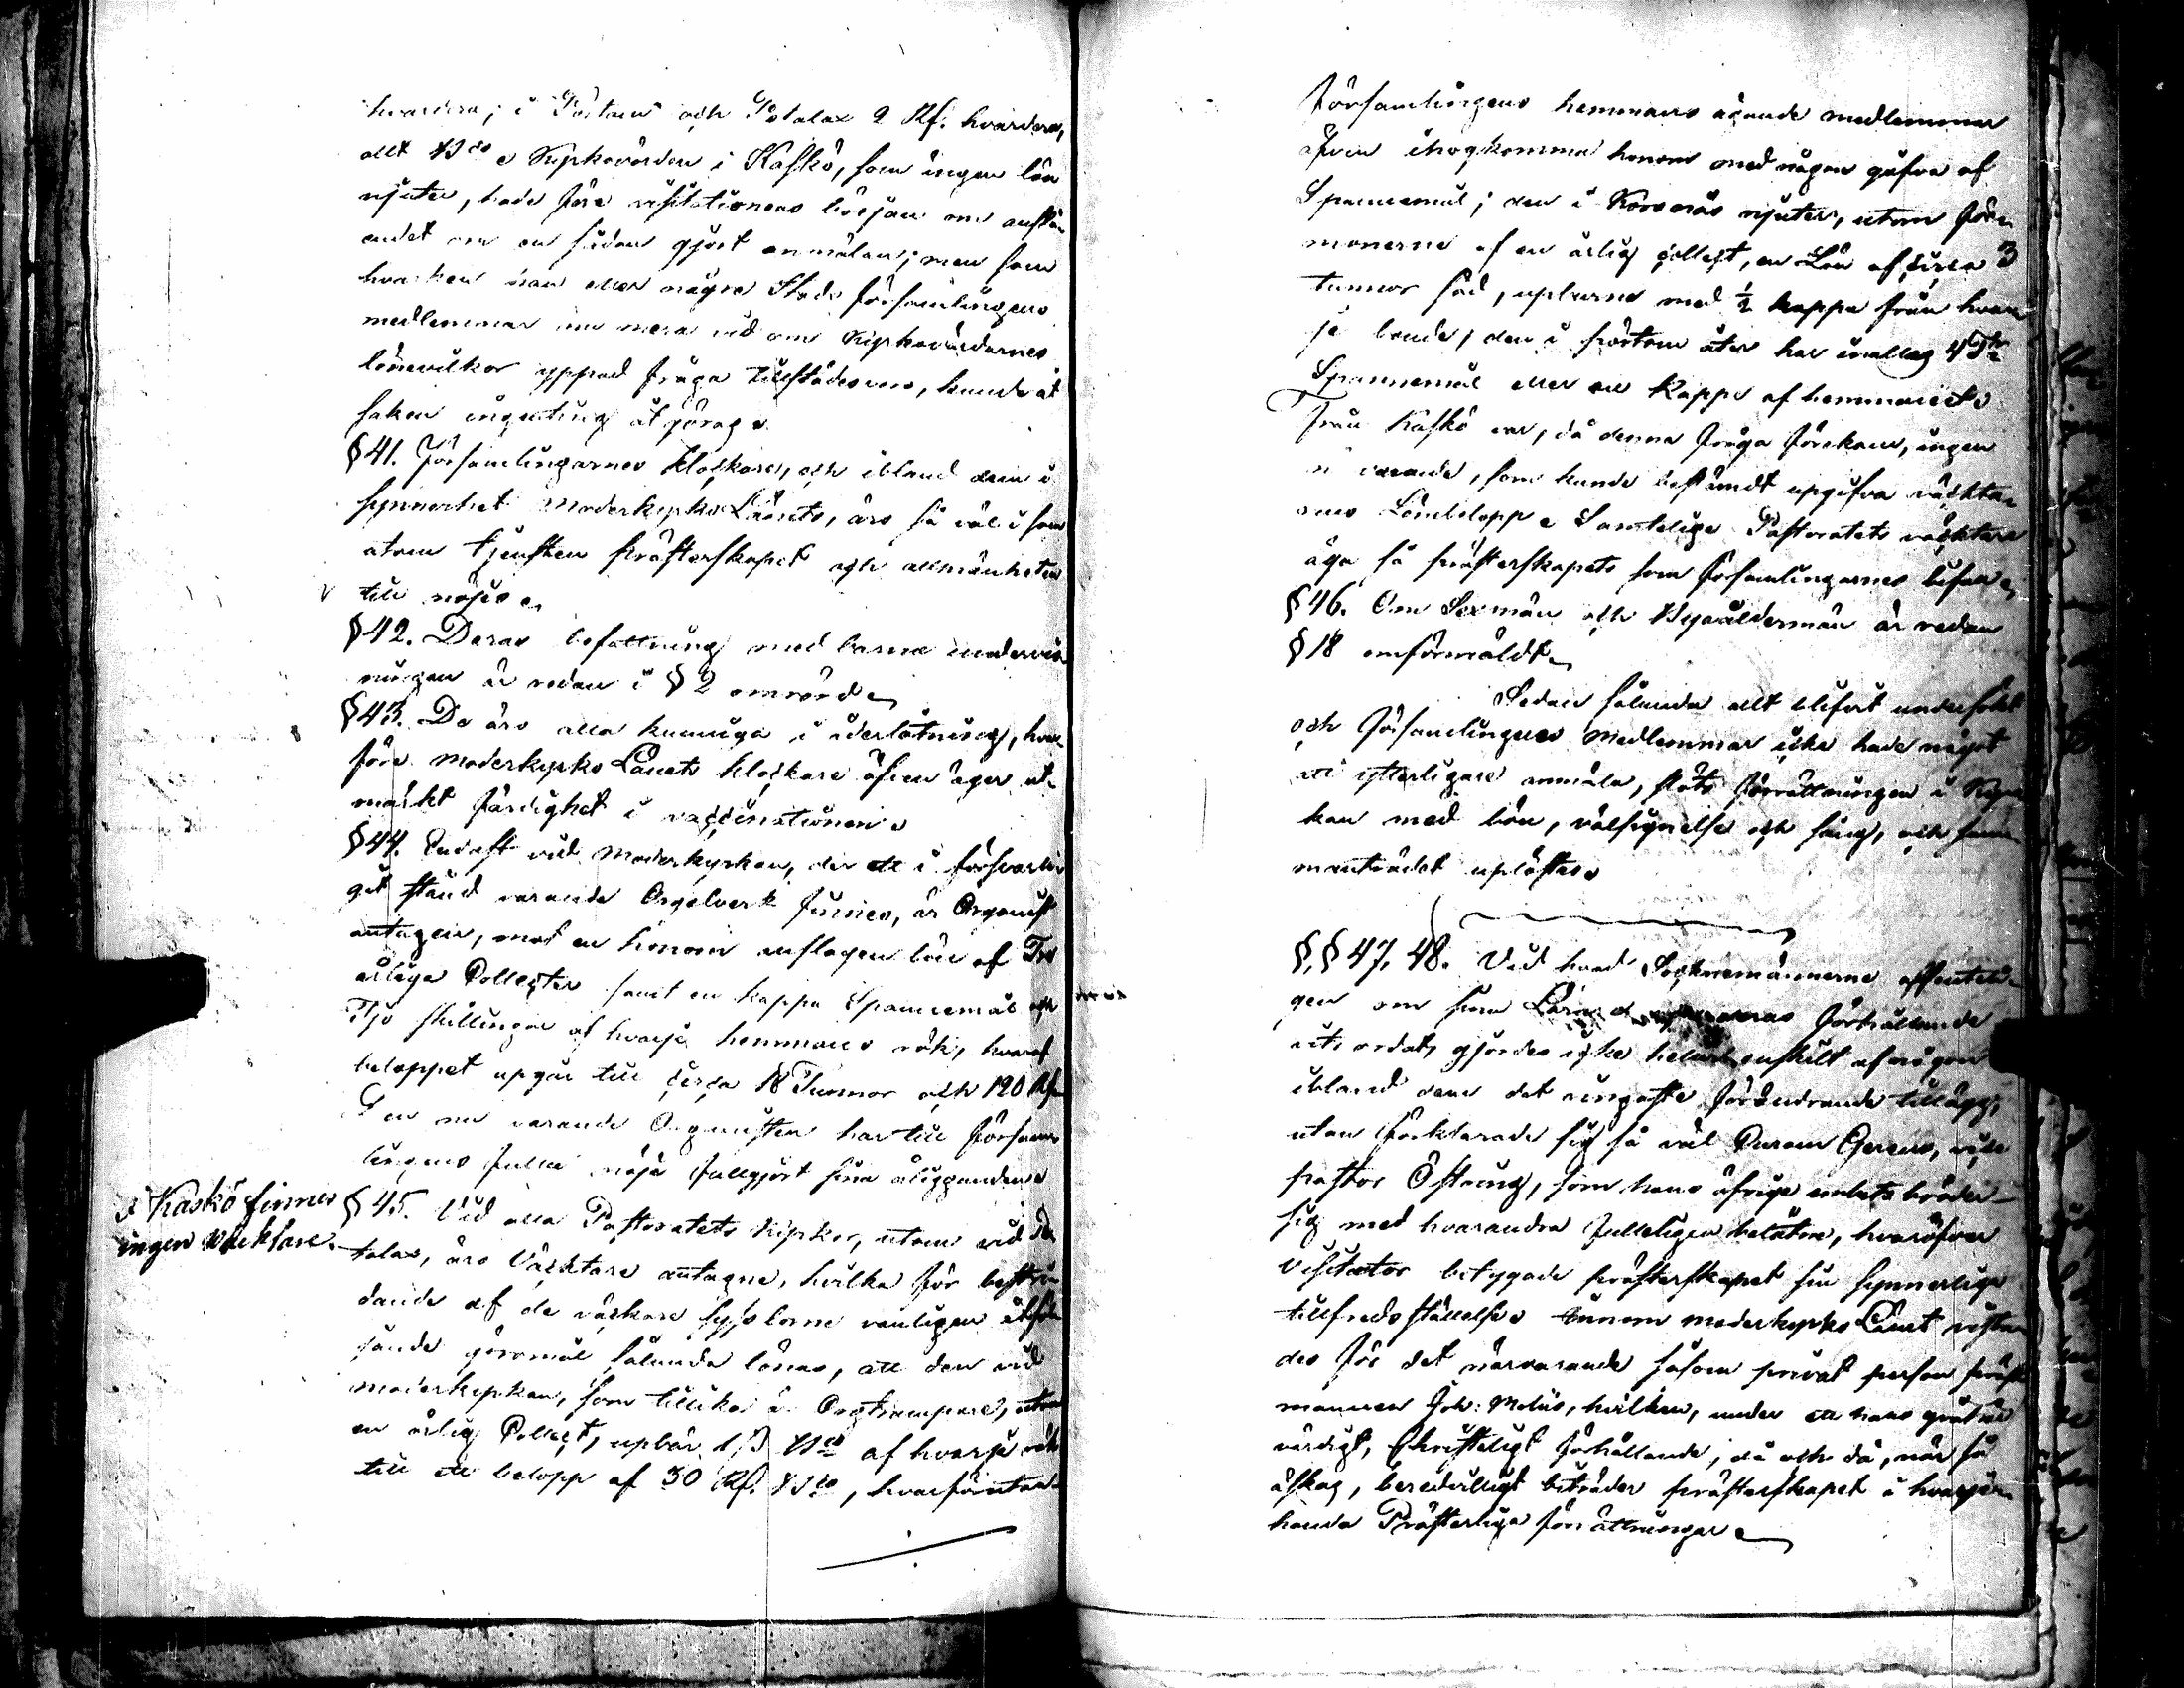 hvardera; i Pörtom och Petalax 2 Rf. hvardera,
allt B:co Kyrkovärden i Kaskö, som ingen lön
njuter, hade före visitationens början om
andet om en sådan gjort anmälan; men som
hvarken han eller någre Stads församlingens
medlemmar nu mera vid om Kyrkovärdarnes
lönevilkor yppad fråga tillstädes voro, kunde åt
saken ingenting åtgöras.
§ 41. Församlingarnes Klockare, och ibland dem i
synnerhet Moderkyrko Länets, äro så väl i som
utom tjensten Prästerskapet och allmänheten
till nöjes.
§ 42. Deras befattning med barna undervis
ningen är redan i § 2 omrörd.
§ 43. De äro alla kunniga i åderlåtning, hvar
före Moderkyrko Länets klockare äfven äger ut
märkt färdighet i vaccinationen.
§ 44. Endast vid Moderkyrkan, der ett i försvarli
get stånd varande Orgelverk finnes, är Organist
antagen, mot en honom anslagen lön af Två
årliga Collecter samt en kappa Spannemål och
Tjo skillingar af hvarje hemmans rök, hvaraf
beloppet upgår till circa 18 Tunnor och 120 Rf.
Den nu varande Organisten har till försam
lingens fulla nöje fullgjort sina åligganden.
I Kaskö finnes
ingen väcktare.
§ 45. Vid alla Pastoratets Kyrkor, utom vid Pe
talax, äro Väcktare antagne, hvilka för bestri
dande af de väcktare sysslorne vanligen åtföl
jande göromål sålunda lönas, att den vid
moderkyrkan, som tillika är Orgtrampare, utom
en årlig Collect, upbär 1 ß B:co af hvarje rök
till ett belopp af 30 Rf. B:co, hvarförutan
Församlingens hemmans ägande medlemmar
äfven ihogkomma honom med någon gåfva af
Spannemål; den i Korsnäs njuter, utom för
monerne af en årlig collect, en Lön af circa 3
tunnor säd, upburne med ½ kappa från hvar
je bonde; den i Pörtom åter har inalles 4 T:r
Spannemål eller en Kappe af hemmanet.
Från Kaskö var, då denna fråga förekom, ingen
när varande, som kunde bestämdt upgifva väckta
rens Lönbelopp. Samtelige Pastoratets väcktare
äga så prästerskapets som församlingarnes bifall.
§ 46. Om Sexmän och Byaåldermän är redan
§ 18 omförmäldt.
Sedan sålunda allt blifvit undersökt
och församlingens Medlemmar icke hade något
att ytterligare anmäla, slöts förrättningen i Kyr
kan med bön, välsignelse och sång, och sam
manträdet uplöstes.
§.§ 47, 48. Vid hvad Socknemännerne offenteli
gen om sina Lärares förhållande
utt ordat, gjordes icke heller enskilt af någon
ibland dem det ringaste förändrande tillägg,
utan förklarade sig så väl Curam Gerens, vice
pastor Östring, som hans öfrige embets bröder
sig med hvarandra fulleligen belåtne, hvaröfver
Visitator betygade prästerskapet sin synnerliga
tillfredsställelse. Innom moderkyrko Länet vistas
des för det närvarande såsom privat person präst
mannen Joh: Molin, hvilken, under ett hans
värdigt, Christeligt förhållande, då och då, när så
äskas, beredvilligt biträder prästerskapet i hvarje
handa Prästerliga förrättningar.